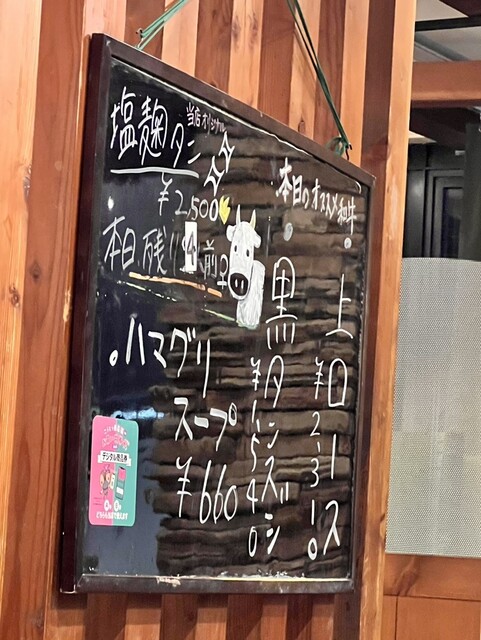 当店オリジナル
塩麹タン
¥2,500
本日残り4人前
ハマグリ
スープ
¥660
本日のオススメ和牛
上ロース
¥2,310
黒タンズシ
¥1,540
デジタル商品券